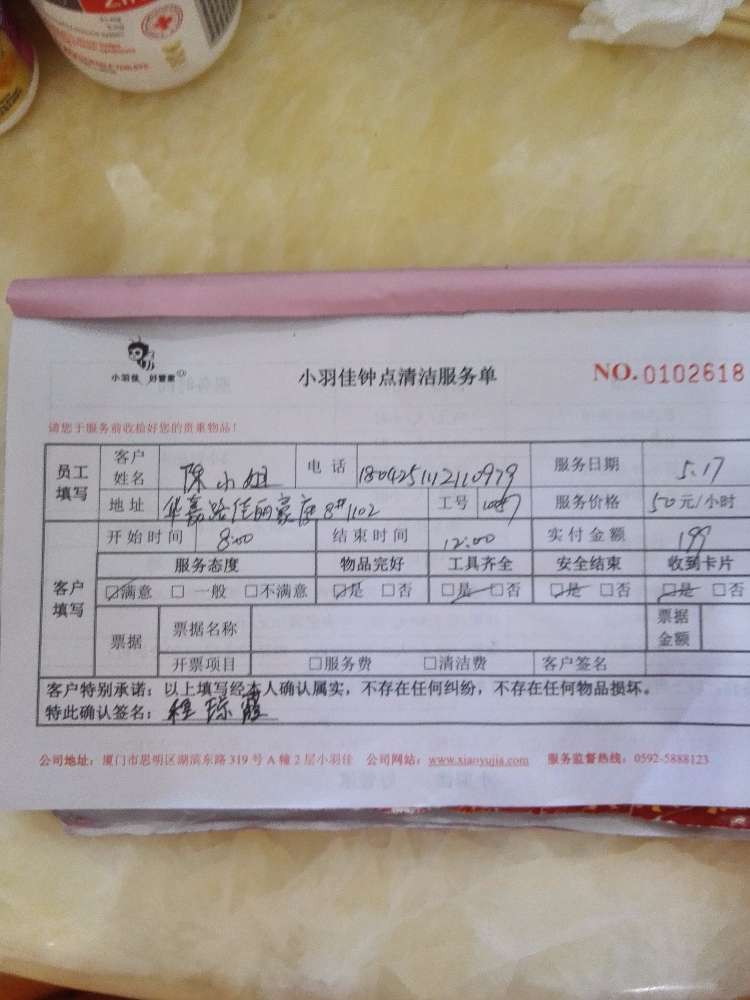 小羽佳 好管家
小羽佳钟点清洁服务单
NO.0102618
请您于服务前收拾好您的贵重物品!
员工填写 客户姓名 陈小姐 电话 服务日期 5.17
地址 华嘉路佳丽豪庭8#1102 工号 服务价格 50元/小时
客户填写 开始时间 8:00 结束时间 12:00 实付金额 199
服务态度 物品完好 工具齐全 安全结束 收到卡片
☑满意 □一般 □不满意 ☑是 □否 ☑是 □否 ☑是 □否 ☑是 □否
票据 票据名称 票据金额
开票项目 □服务费 □清洁费 客户签名
客户特别承诺：以上填写经本人确认属实，不存在任何纠纷，不存在任何物品损坏。
特此确认签名：程琼霞
公司地址：厦门市思明区湖滨东路319号A幢2层小羽佳 公司网站：www.xiaoyujia.com 服务监督热线：0592-5888123